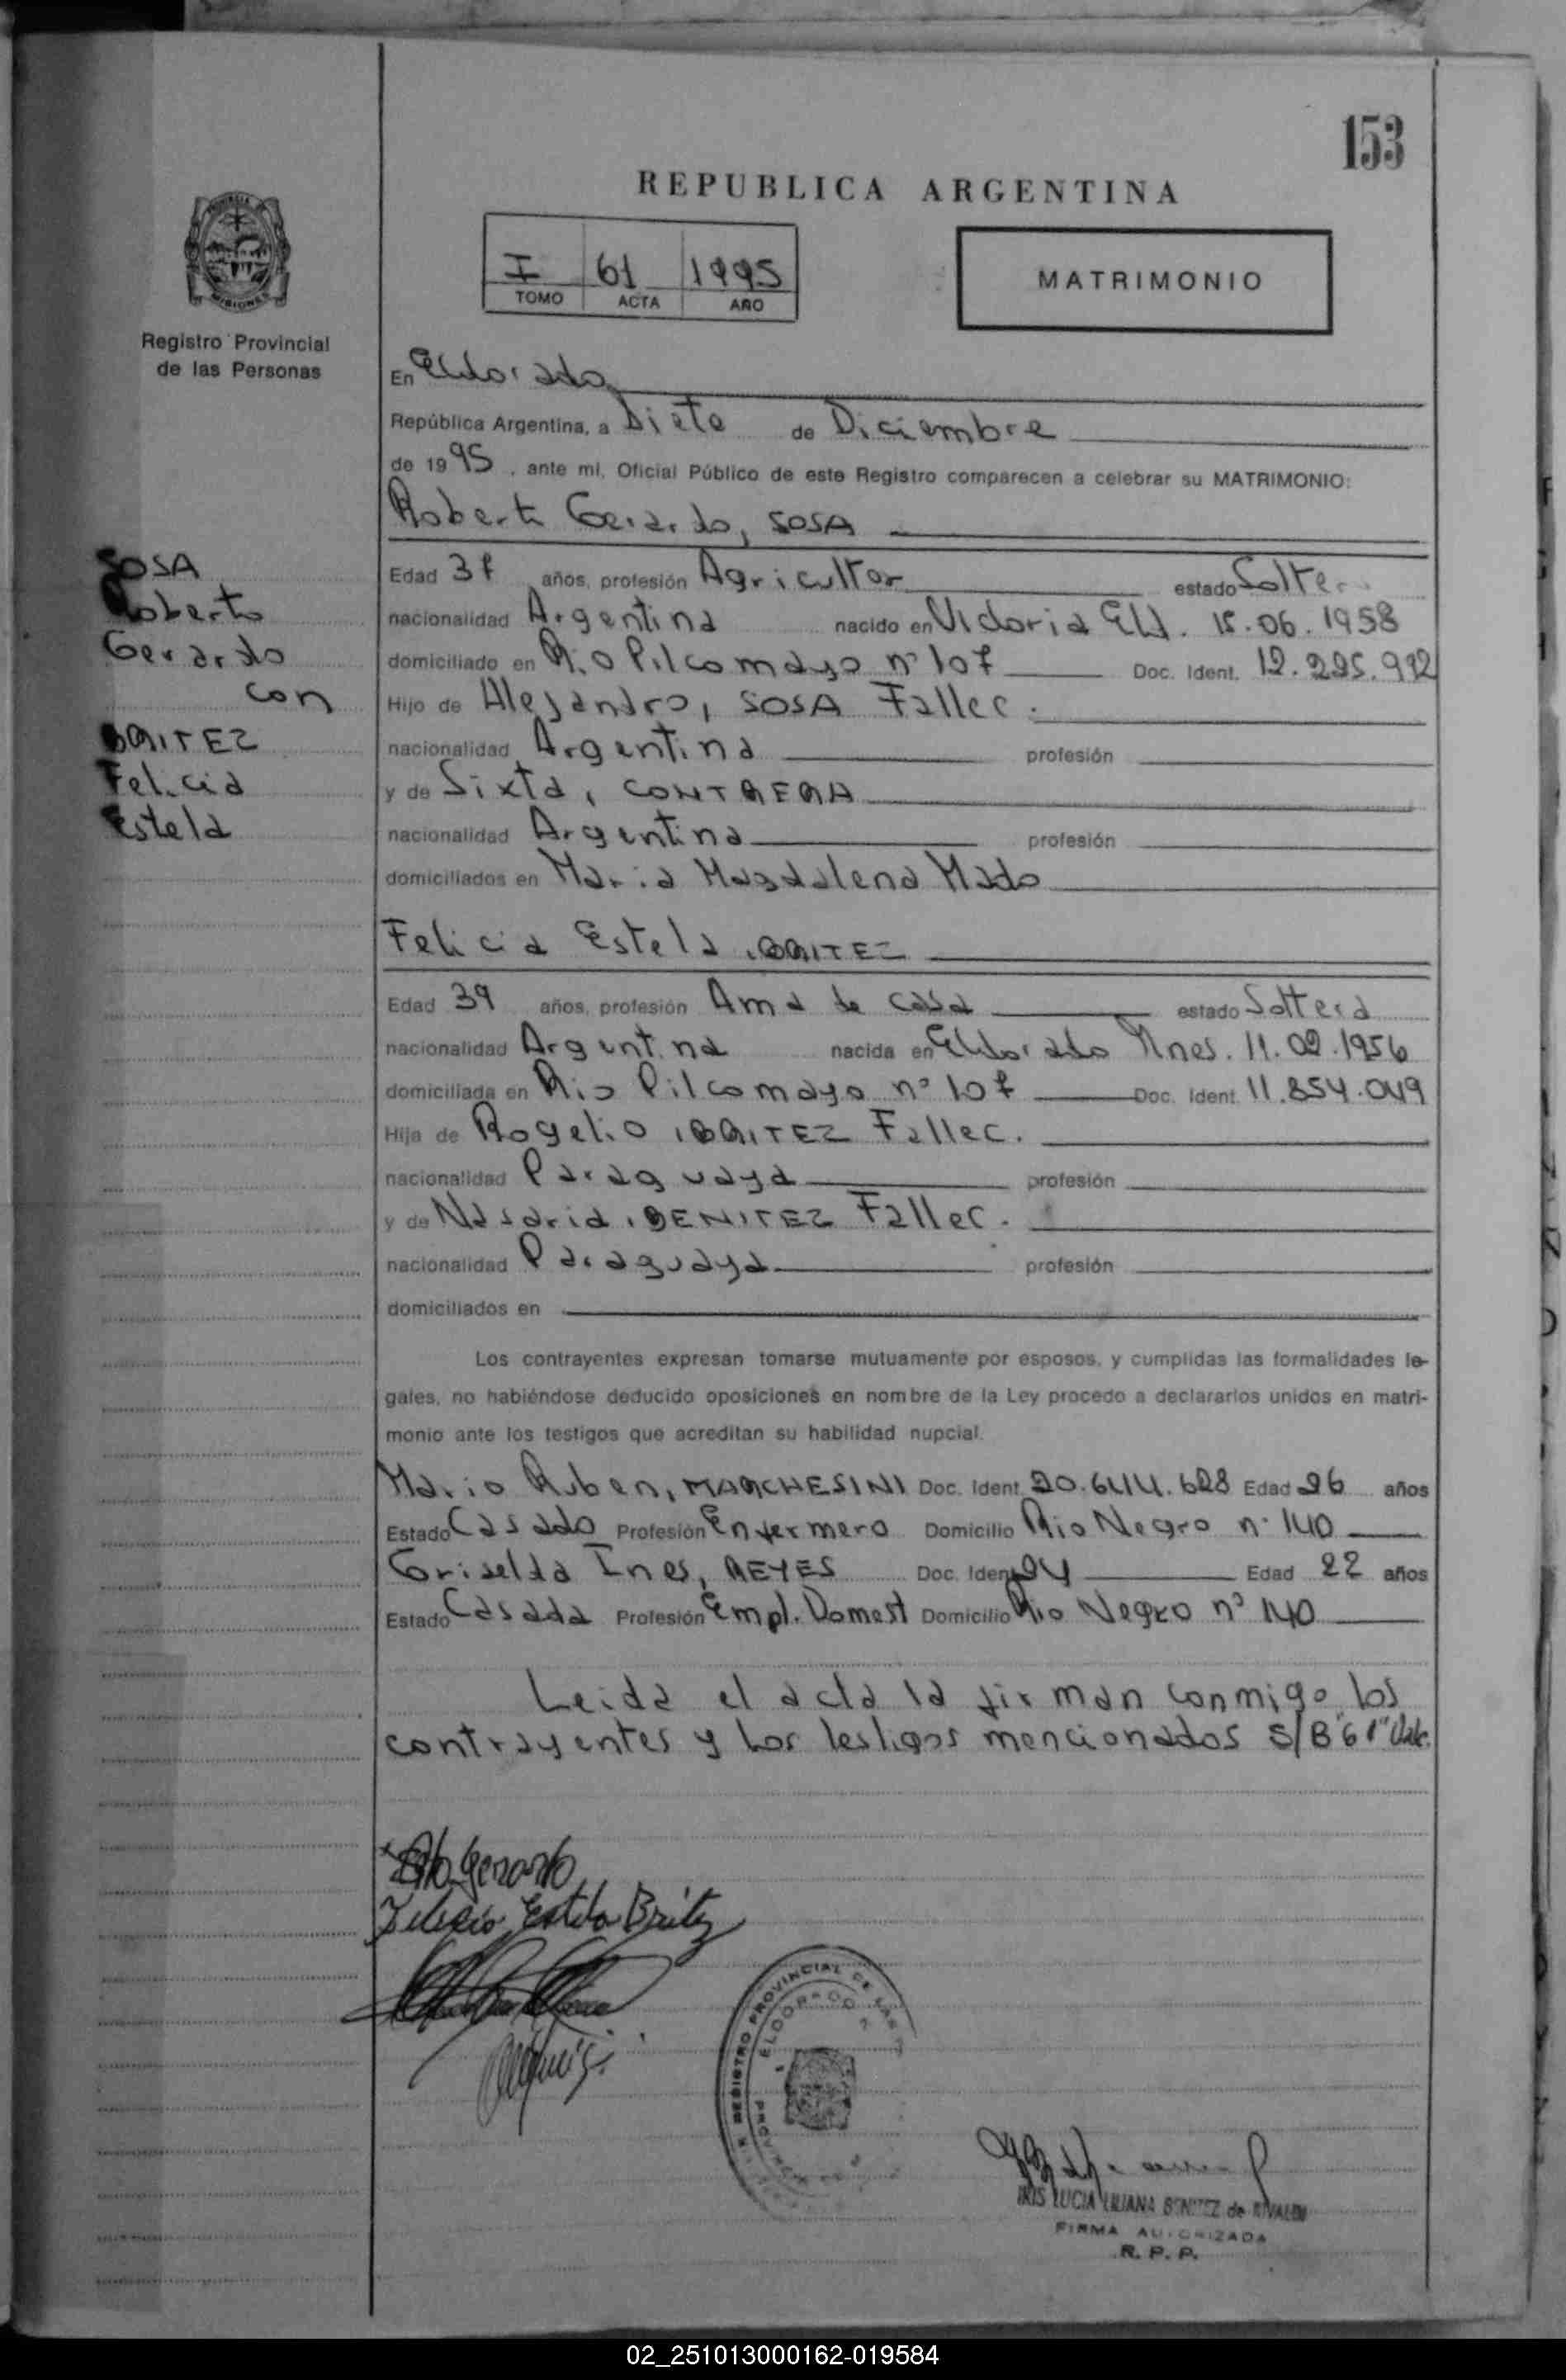 153
REPUBLICA ARGENTINA
I 61 1995
TOMO ACTA AÑO
MATRIMONIO
PROVINCIA
MISIONES
Registro Provincial
de las Personas
En Eldorado
República Argentina, a Siete de Diciembre
de 1995, ante mí, Oficial Público de este Registro comparecen a celebrar su MATRIMONIO:
Roberto Gerardo, SOSA
SOSA
Roberto
Gerardo
con
BRITEZ
Felicia
Estela
Edad 37 años, profesión Agricultor estado Solter
nacionalidad Argentina nacido en Victoria Eld. 15.06.1958
domiciliado en Rio Pilcomayo nº 107 Doc. Ident. 12.225.992
Hijo de Alejandro, SOSA Fallec.
nacionalidad Argentina profesión
y de Sixta, CONTRERA
nacionalidad Argentina profesión
domiciliados en Maria Magdalena Mado
Felicia Estela, BRITEZ
Edad 39 años, profesión Ama de casa estado Soltera
nacionalidad Argentina nacida en Eldorado Mnes. 11.02.1956
domiciliada en Rio Pilcomayo nº 107 Doc. Ident. 11.854.049
Hija de Rogelio, BRITEZ Fallec.
nacionalidad Paraguaya profesión
y de Nasaria, BENITEZ Fallec.
nacionalidad Paraguaya profesión
domiciliados en
Los contrayentes expresan tomarse mutuamente por esposos, y cumplidas las formalidades le-
gales, no habiéndose deducido oposiciones en nombre de la Ley procedo a declararlos unidos en matri-
monio ante los testigos que acreditan su habilidad nupcial.
Mario Ruben, MARCHESINI Doc. Ident. 20.644.628 Edad 26 años
Estado Casado Profesión Enfermero Domicilio Rio Negro nº 140
Griselda Ines, REYES Doc. Ident. Edad 22 años
Estado Casada Profesión Empl. Domest Domicilio Rio Negro nº 140
Leida el acta la firman conmigo los
contrayentes y los testigos mencionados S/B "61" Vale.
Gerardo
Felicia Estela Britez
REGISTRO PROVINCIAL DE LAS
ELDORADO
IRIS LUCIA LILIANA BENITEZ de RIVALDI
FIRMA AUTORIZADA
R. P. P.
02_251013000162-019584